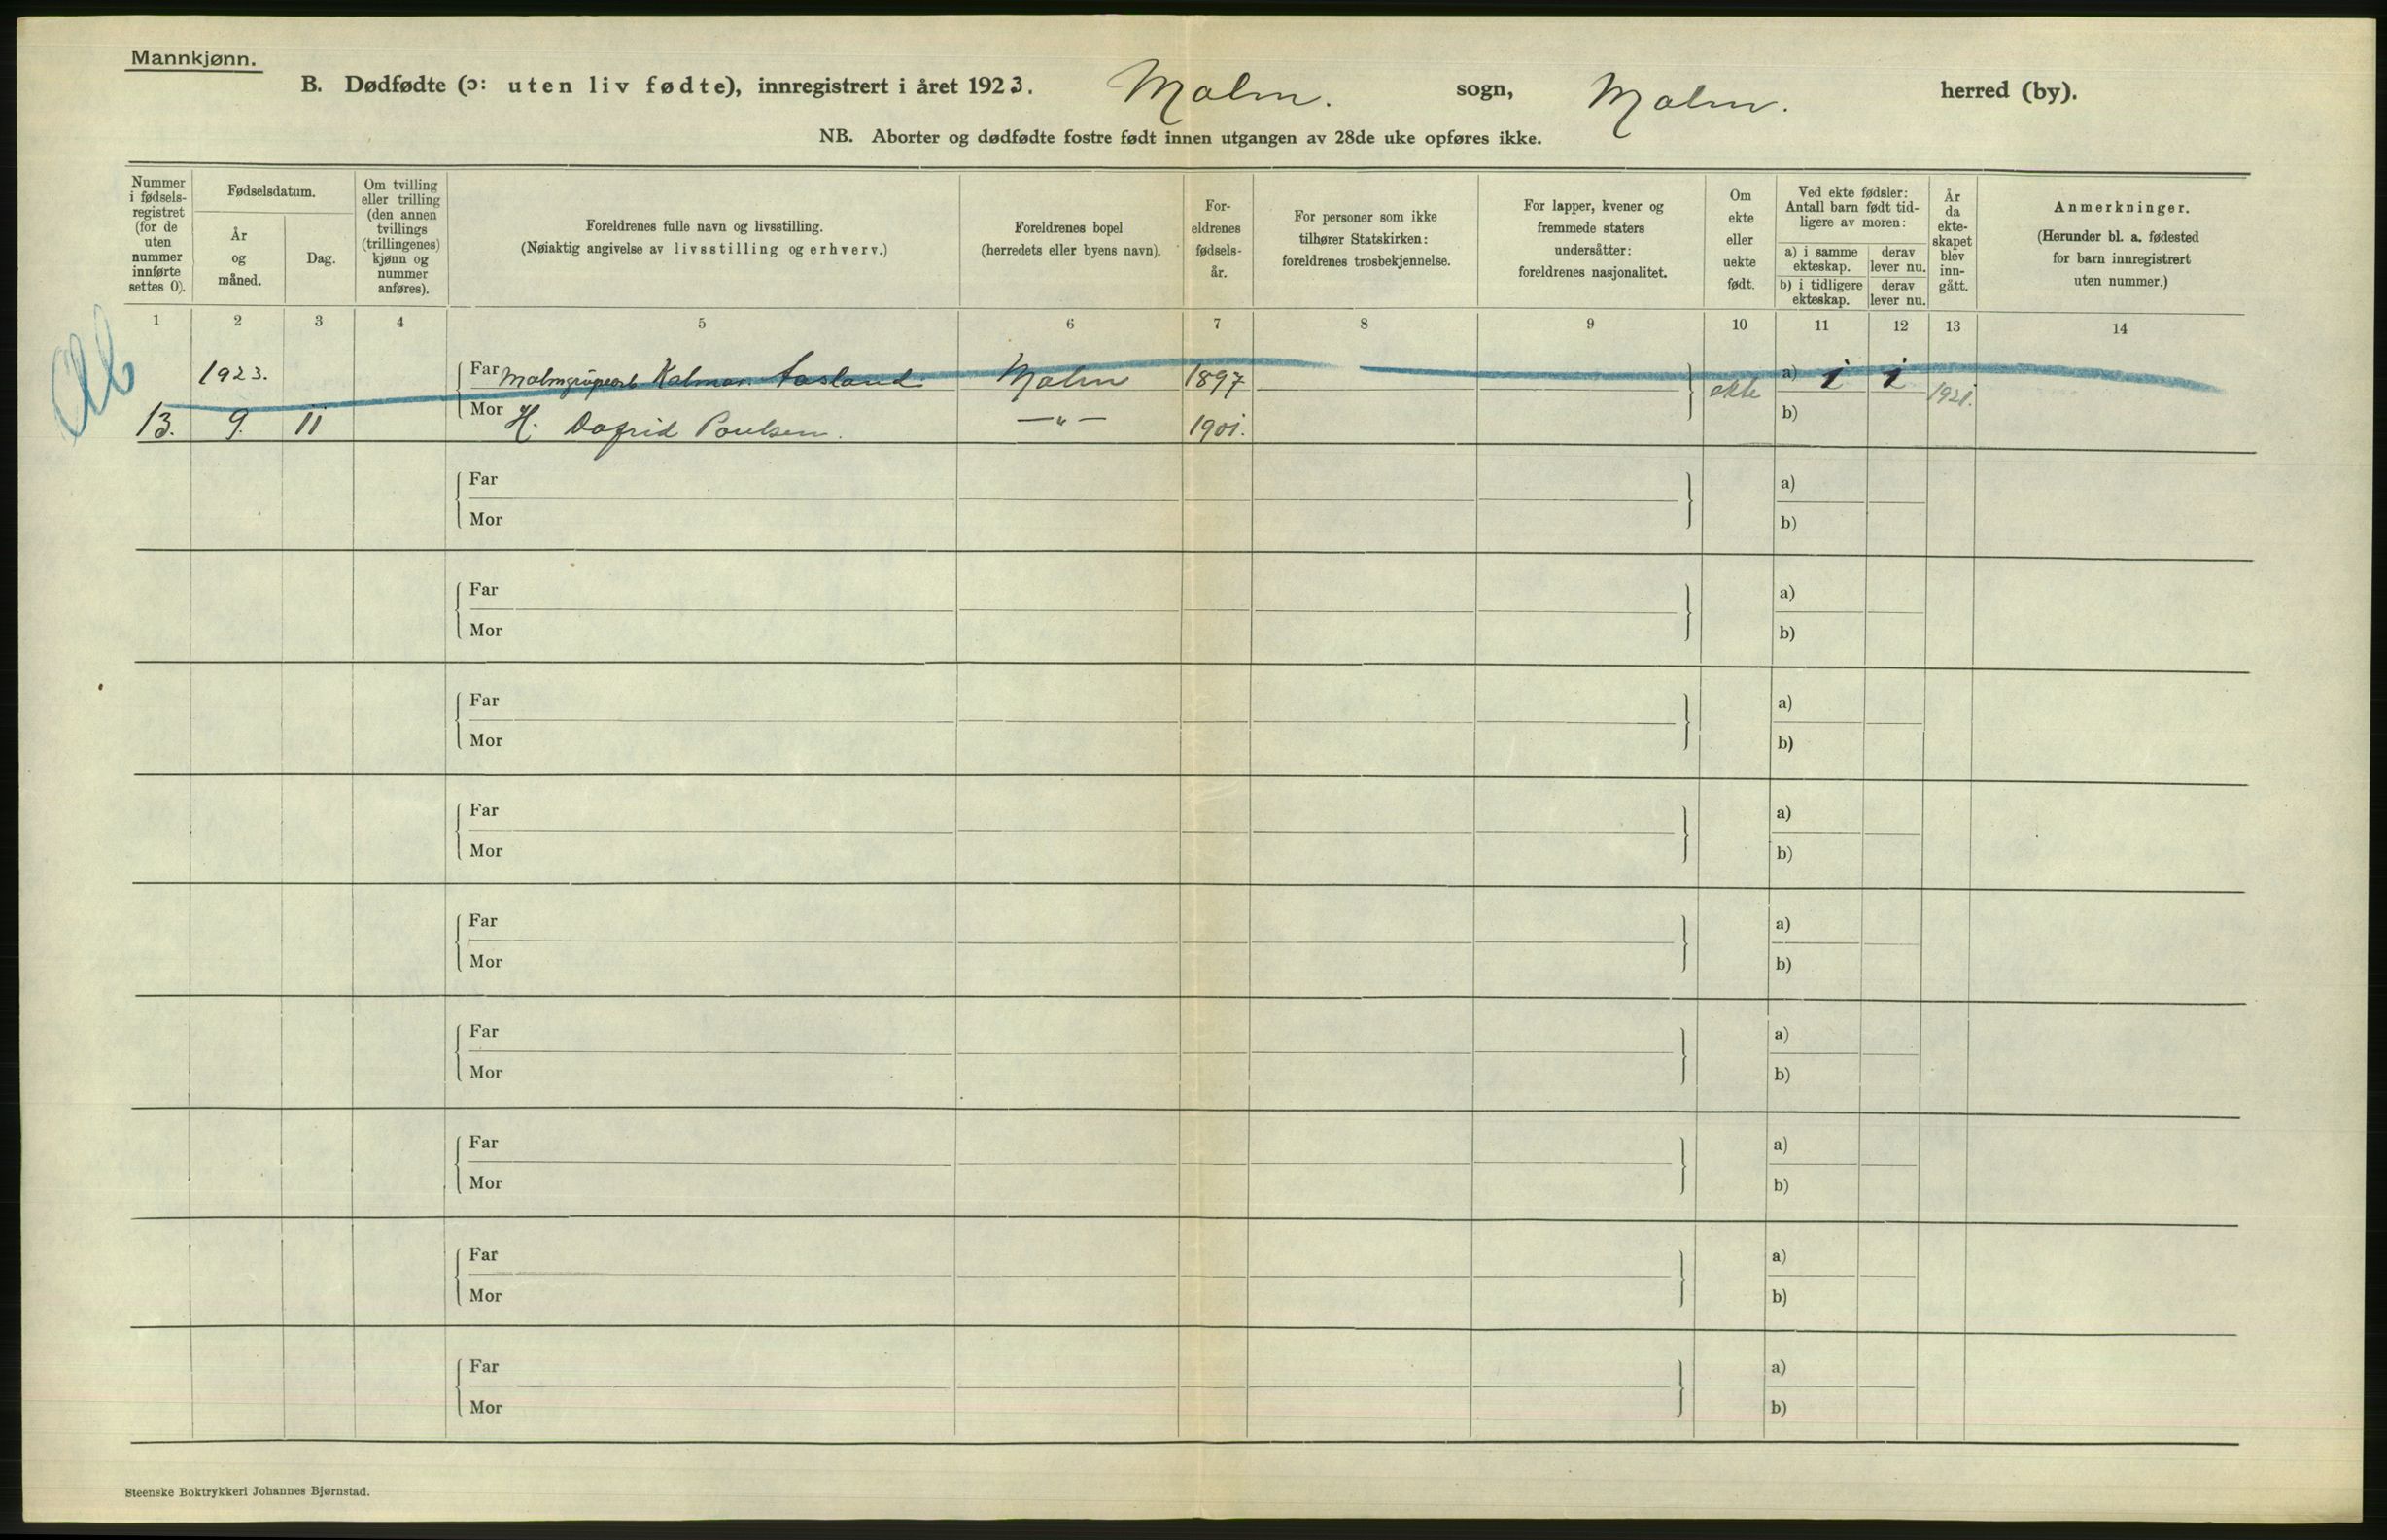 Mannkjønn.
B. Dødfødte (ɔ: uten liv fødte), innregistrert i året 1923. Malm. sogn, Malm. herred (by).
NB. Aborter og dødfødte fostre født innen utgangen av 28de uke opføres ikke.
Nummer i fødsels-registret (for de uten nummer innførte settes 0).
Fødselsdatum.
År og måned.
Dag.
Om tvilling eller trilling (den annen tvillings (trillingenes) kjønn og nummer anføres).
Foreldrenes fulle navn og livsstilling.
(Nøiaktig angivelse av livsstilling og erhverv.)
Foreldrenes bopel
(herredets eller byens navn).
For-eldrenes fødsels-år.
For personer som ikke tilhører Statskirken: foreldrenes trosbekjennelse.
For lapper, kvener og fremmede staters undersåtter: foreldrenes nasjonalitet.
Om ekte eller uekte født.
Ved ekte fødsler: Antall barn født tid-ligere av moren:
a) i samme ekteskap.
derav lever nu.
b) i tidligere ekteskap.
derav lever nu.
År da ekte-skapet blev inn-gått.
Anmerkninger.
(Herunder bl. a. fødested for barn innregistrert uten nummer.)
1 2 3 4 5 6 7 8 9 10 11 12 13 14
1923. Far Kalmar Aasland Malm 1897 ekte a) 1 1 1921.
13. 9. 11 Mor H. Dafrid Poulsen. —„— 1901. b)
Far a)
Mor b)
Far a)
Mor b)
Far a)
Mor b)
Far a)
Mor b)
Far a)
Mor b)
Far a)
Mor b)
Far a)
Mor b)
Far a)
Mor b)
Far a)
Mor b)
Steenske Boktrykkeri Johannes Bjørnstad.